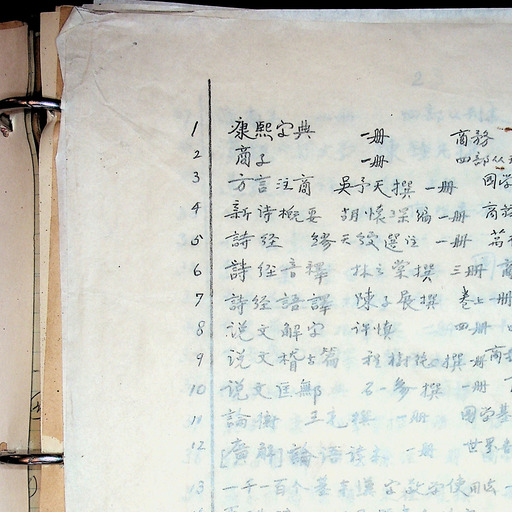 2
1 康熙字典 一册 商務
2 商子 一册 四部丛
3 方言注商 吴予天撰 一册 国学
4 新诗概要 胡懷琛编 一册 商務
5 詩经 缪天绶選注 一册 萬
6 詩经音釋 林之棠撰 三册 商
7 詩经語譯 陳子展撰 卷上一册
8 说文解字 许慎 四册
9 说文稽古篇 程樹德撰 一册 商務
10 说文匡鄦 石一参撰 一册
11 論衡 王充撰 一册 国学基
12 [廣解]論语读本 一册 世界書
13 一千一百个基本漢字教学使用法 一